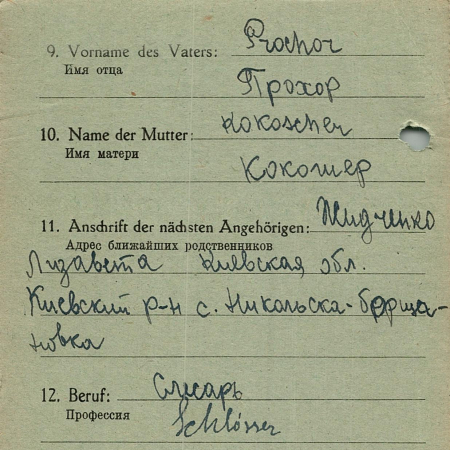 9. Vorname des Vaters: Prochor
Имя отца
Прохор
10. Name der Mutter: Kokoscher
Имя матери
Кокошер
11. Anschrift der nächsten Angehörigen: Жидченко
Адрес ближайших родственников
Лизавета Киевская обл.
Киевский р-н с. Никольска-борща-
новка
12. Beruf: Слесарь
Профессия
Schlösser